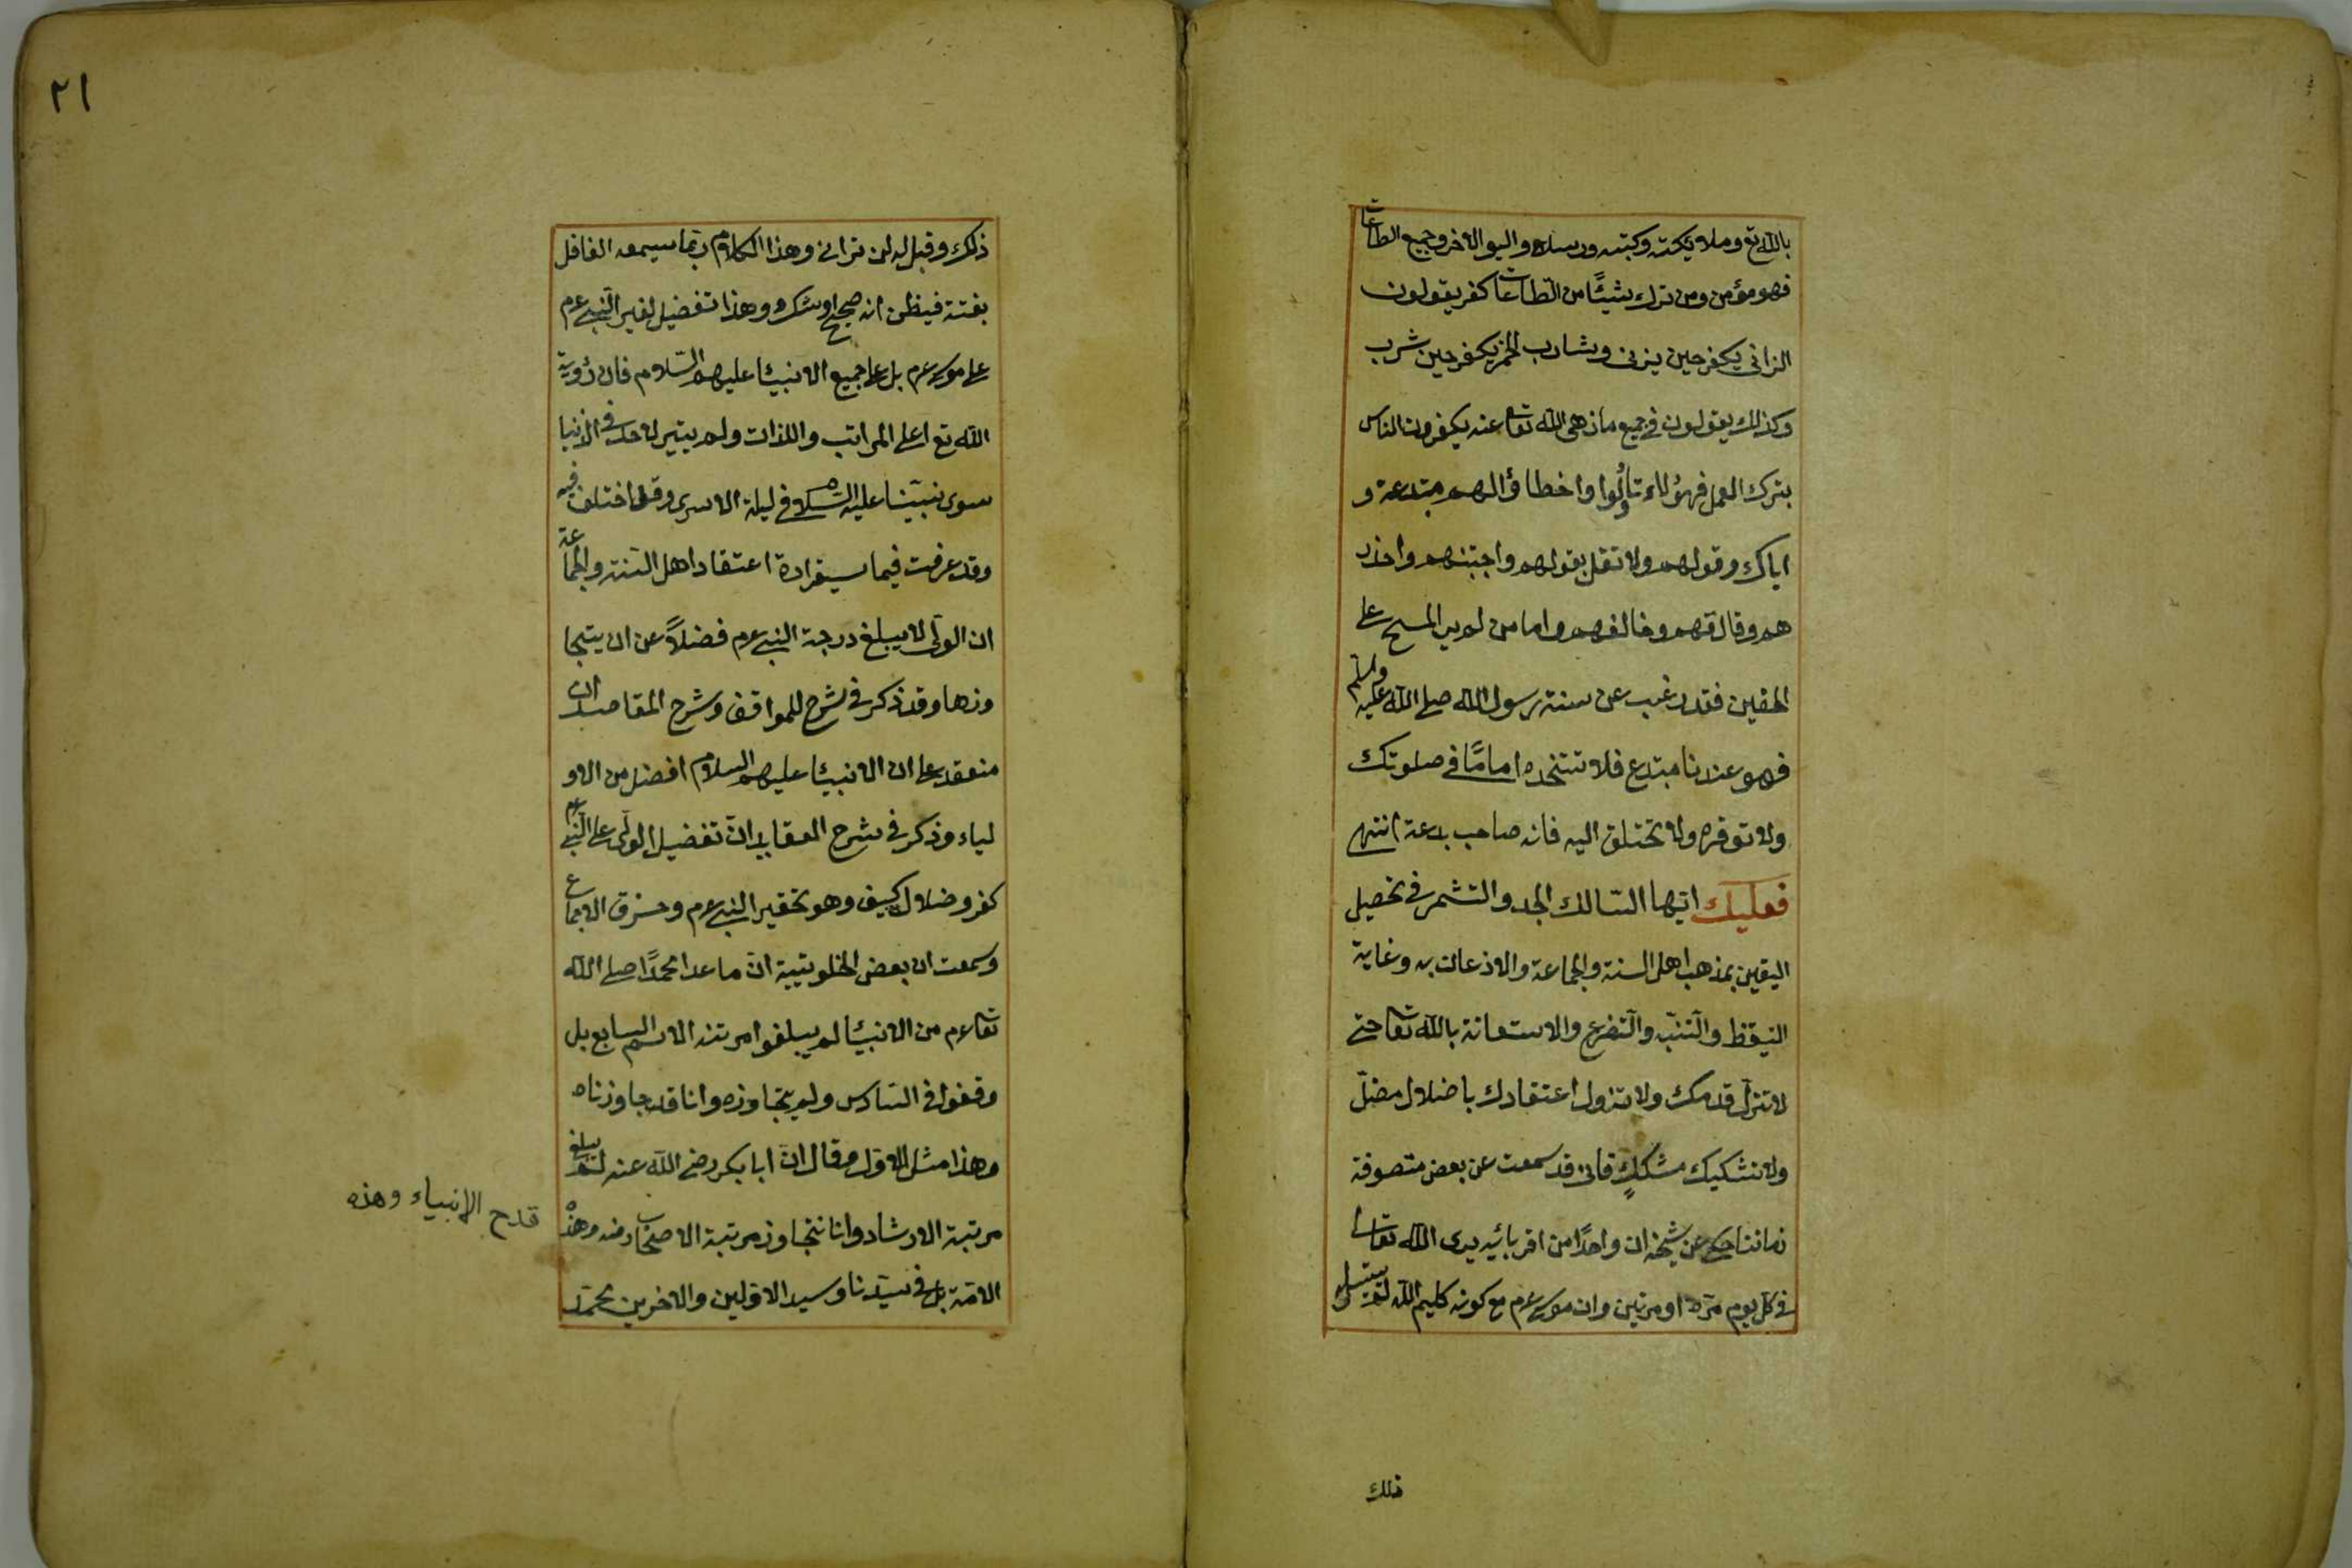 بالله تع وملائكته وكتبه ورسله واليوم الاخر وجميع الطاعات
فهو مؤمن ومن ترك شيئًا من الطّاعات كفر يقولون
الزانى يكفر حين يزنى وشارب الخمر يكفر حين شرب
وكذلك يقولون فى جميع ما نهى الله تعا عنه يكفرون الناس
بترك العمل فهؤلاء تأولوا واخطاؤا لهم مبتدعة و
اياك وقولهم ولا تقل بقولهم واجتنبهم واحذر
هم وفارقهم وخالفهم واما من لم ير المسح على
الخفين فقد رغب عن سنة رسول الله صلى الله عليه وسلّم
فهو عندنا مبتدع فلا تتخذه امامًا فى صلوتك
ولا توقره ولا تختلق اليه فانه صاحب بدعة انتهى
فعليك ايّها السّالك الجد والتشمر فى تحصيل
اليقين بمذهب اهل السنة والجماعة والاذعان به وغاية
التيقظ والتّنبّه والتّضرع والاستعانة بالله تعا حتى
لا تزلّ قدمك ولا تزول اعتقادك باضلال مضلّ
ولا تشكيك مشككٍ فانى قد سمعت عن بعض متصوفة
زماننا حكى عن شيخه ان واحدًا من اقربائه يرى الله تعالى
فى كلّ يوم مرّة او مرتين وان موسى عم مع كونه كليم الله لم يتيسر له
ذلك
٢١
ذلك وقيل له لن ترانى وهذا الكلام ربّما سيمعه الغافل
بغتة فيظن انه صحيح او شك وهذا تفضيل لغير النبى عم
على موسى عم بل على جميع الانبيا عليهم السّلام فان رؤية
الله تع اعلى المراتب واللذات ولم يتيسر لاحد فى الدنيا
سوى نبيّنا عليه السلام فى ليلة الاسرى وقد اختلف فيه
وقد عرفت فيما سيق اعتقاد اهل السّنة والجماعة
ان الولى لا يبلغ درجة النبى عم فضلاً عن ان يتجا
وزها وقد ذكر فى شرح للمواقف وشرح المقاصد ان
منعقد على ان الانبيا عليهم السلام افضل من الاو
لياء وذكر فى شرح العقايد انّ تفضيل الولى على النّبى عم
كفر وضلال كيف وهو تحقير النبى عم وخرق الاجماع
وسمعت ان بعض الخلوتيية انّ ما عدا محمدًا صلى الله
تعا عم من الانبيا لم يبلغوا مرتبة الاسم السابع بل
وقفوا فى السّادس ولم يتجاوزه وانا قد جاوزناه
وهذا مثل الاول وقال انّ ابا بكر رضى الله عنه لم يبلغ
مرتبة الارشاد وانا نتجاوز مرتبة الاصحاب منه وهذه
الامّة بل فى سيّدنا وسيد الاولين والاخرين محمّد
قدح الانبياء وهذه